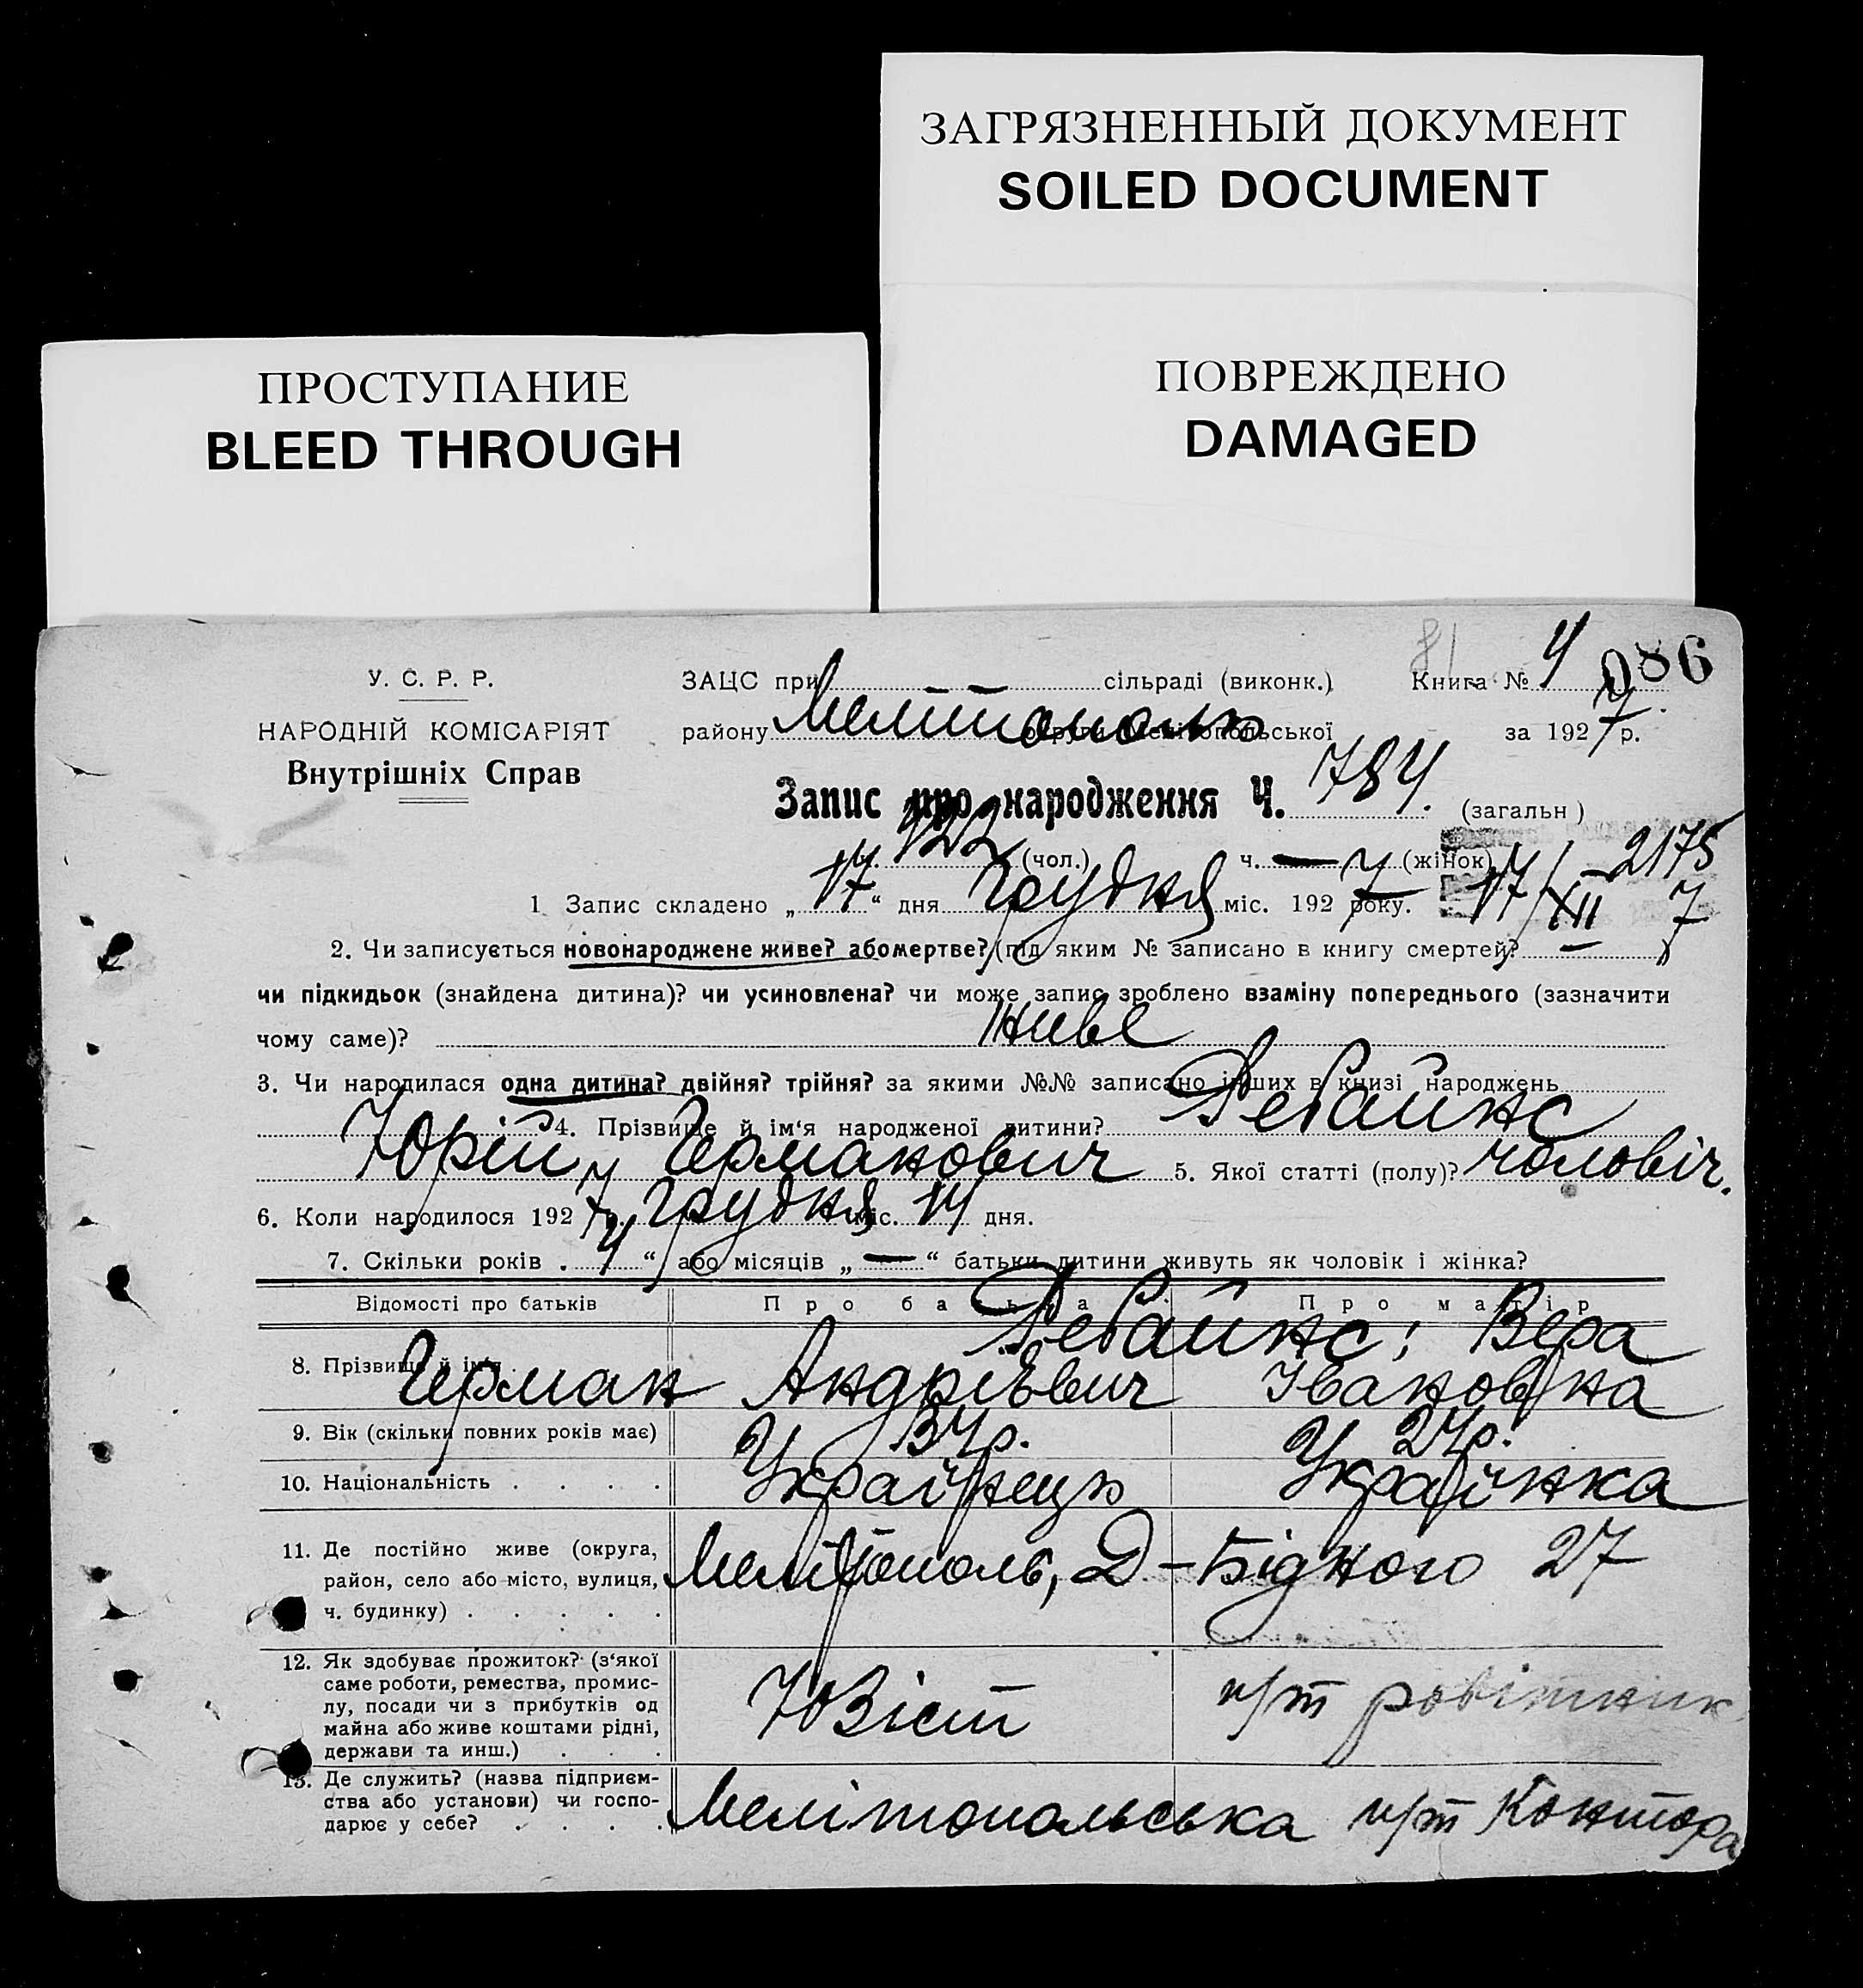 ЗАГРЯЗНЕННЫЙ ДОКУМЕНТ
SOILED DOCUMENT
ПРОСТУПАНИЕ
BLEED THROUGH
ПОВРЕЖДЕНО
DAMAGED
У. С. Р. Р.
НАРОДНІЙ КОМІСАРІЯТ
Внутрішніх Справ
ЗАЦС при сільраді (виконк.) Книга № 4 086
району Мелітополь округи Мелітопольської за 1927 р.
Запис про народження Ч. 784. (загальн)
422 (чол.) ч. — (жінок) 2175
1 Запис складено „17“ дня Грудня міс. 1927 року. 17/XII 7
2. Чи записується новонароджене живе? або мертве? (під яким № записано в книгу смертей? —)
чи підкидьок (знайдена дитина)? чи усиновлена? чи може запис зроблено взаміну попереднього (зазначити
чому саме)? живе
3. Чи народилася одна дитина? двійня? трійня? за якими №№ записано інших в книзі народжень
4. Прізвище й ім‘я народженої дитини?
Юрій Германович 5. Якої статті (полу)? чоловіч.
6. Коли народилося 1927 р. Грудня міс. 14 дня.
7. Скільки років „4“ або місяців „—“ батьки дитини живуть як чоловік і жінка?
Відомості про батьків Про батька Про матір
8. Прізвище й ім‘я Вера
Герман Андрієвич Івановна
9. Вік (скільки повних років має) 34р. 24р.
10. Національність Українець Українка
11. Де постійно живе (округа,
район, село або місто, вулиця,
ч. будинку) Мелітополь, Д-Бідного 27
12. Як здобуває прожиток? (з‘якої
саме роботи, ремества, промис-
лу, посади чи з прибутків од
майна або живе коштами рідні,
держави та инш.) Юзіст п/т робітник
13. Де служить? (назва підприєм-
ства або установи) чи госпо-
дарює у себе? Мелітопольська п/т Контора